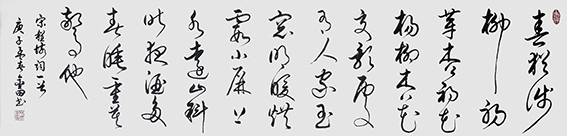 春犹浅
柳初
芽杏初花
杨柳杏花
交影处
有人家玉
窗明暖烘
霞小屏上
水远山斜
昨夜酒多
春睡重莫
惊他
宋程垓词一首
庚子年春 金田书